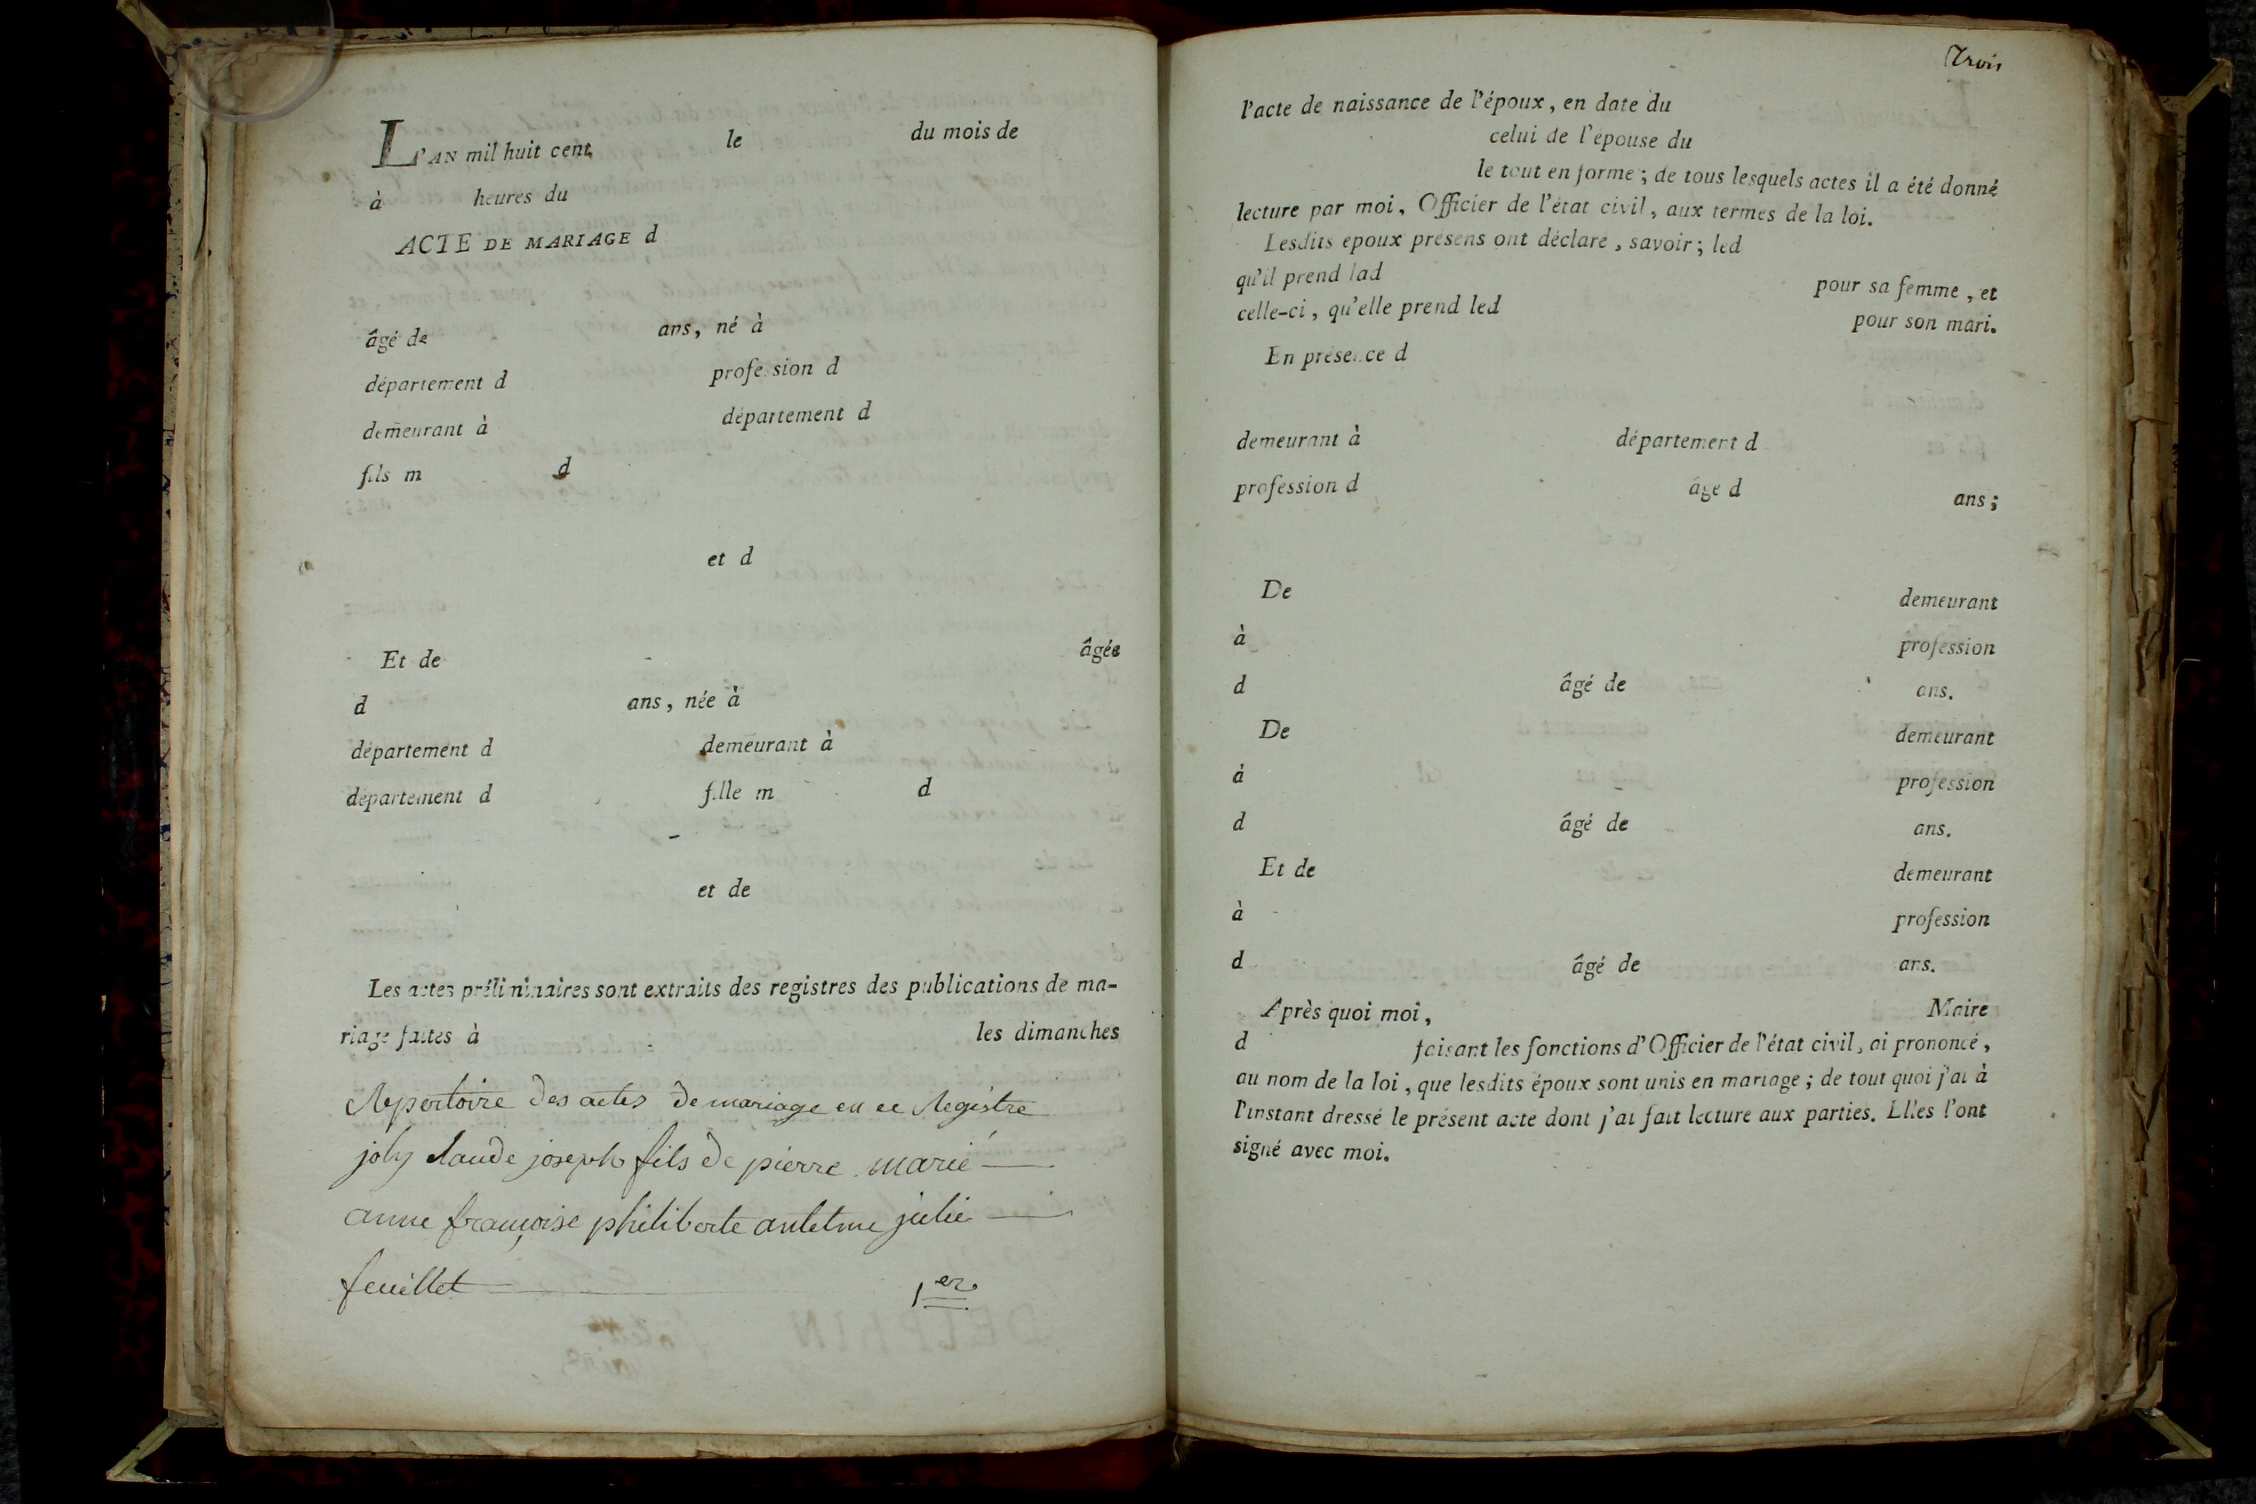 L'AN mil huit cent le du mois de
à heures du
ACTE DE MARIAGE d
âgé de ans, né à
département d profession d
demeurant à département d
fils m d
et d
Et de âgée
d ans, née à
département d demeurant à
département d fille m d
et de
Les actes préliminaires sont extraits des registres des publications de ma-
riage faites à les dimanches
Repertoire des actes de mariage en ce Registre
joly claude joseph fils de pierre marié
anne françoise philiberte antelme julie
feuillet 1er
Trois
l'acte de naissance de l'époux, en date du
celui de l'épouse du
le tout en forme; de tous lesquels actes il a été donné
lecture par moi, Officier de l'état civil, aux termes de la loi.
Lesdits epoux présens ont déclaré, savoir; led
qu'il prend lad pour sa femme, et
celle-ci, qu'elle prend led pour son mari.
En présence d
demeurant à département d
profession d âge d ans;
De demeurant
à profession
d âgé de ans.
De demeurant
à profession
d âgé de ans.
Et de demeurant
à profession
d âgé de ans.
Après quoi moi, Maire
d faisant les fonctions d'Officier de l'état civil, ai prononcé,
au nom de la loi, que lesdits époux sont unis en mariage; de tout quoi j'ai à
l'instant dressé le présent acte dont j'ai fait lecture aux parties. Elles l'ont
signé avec moi.